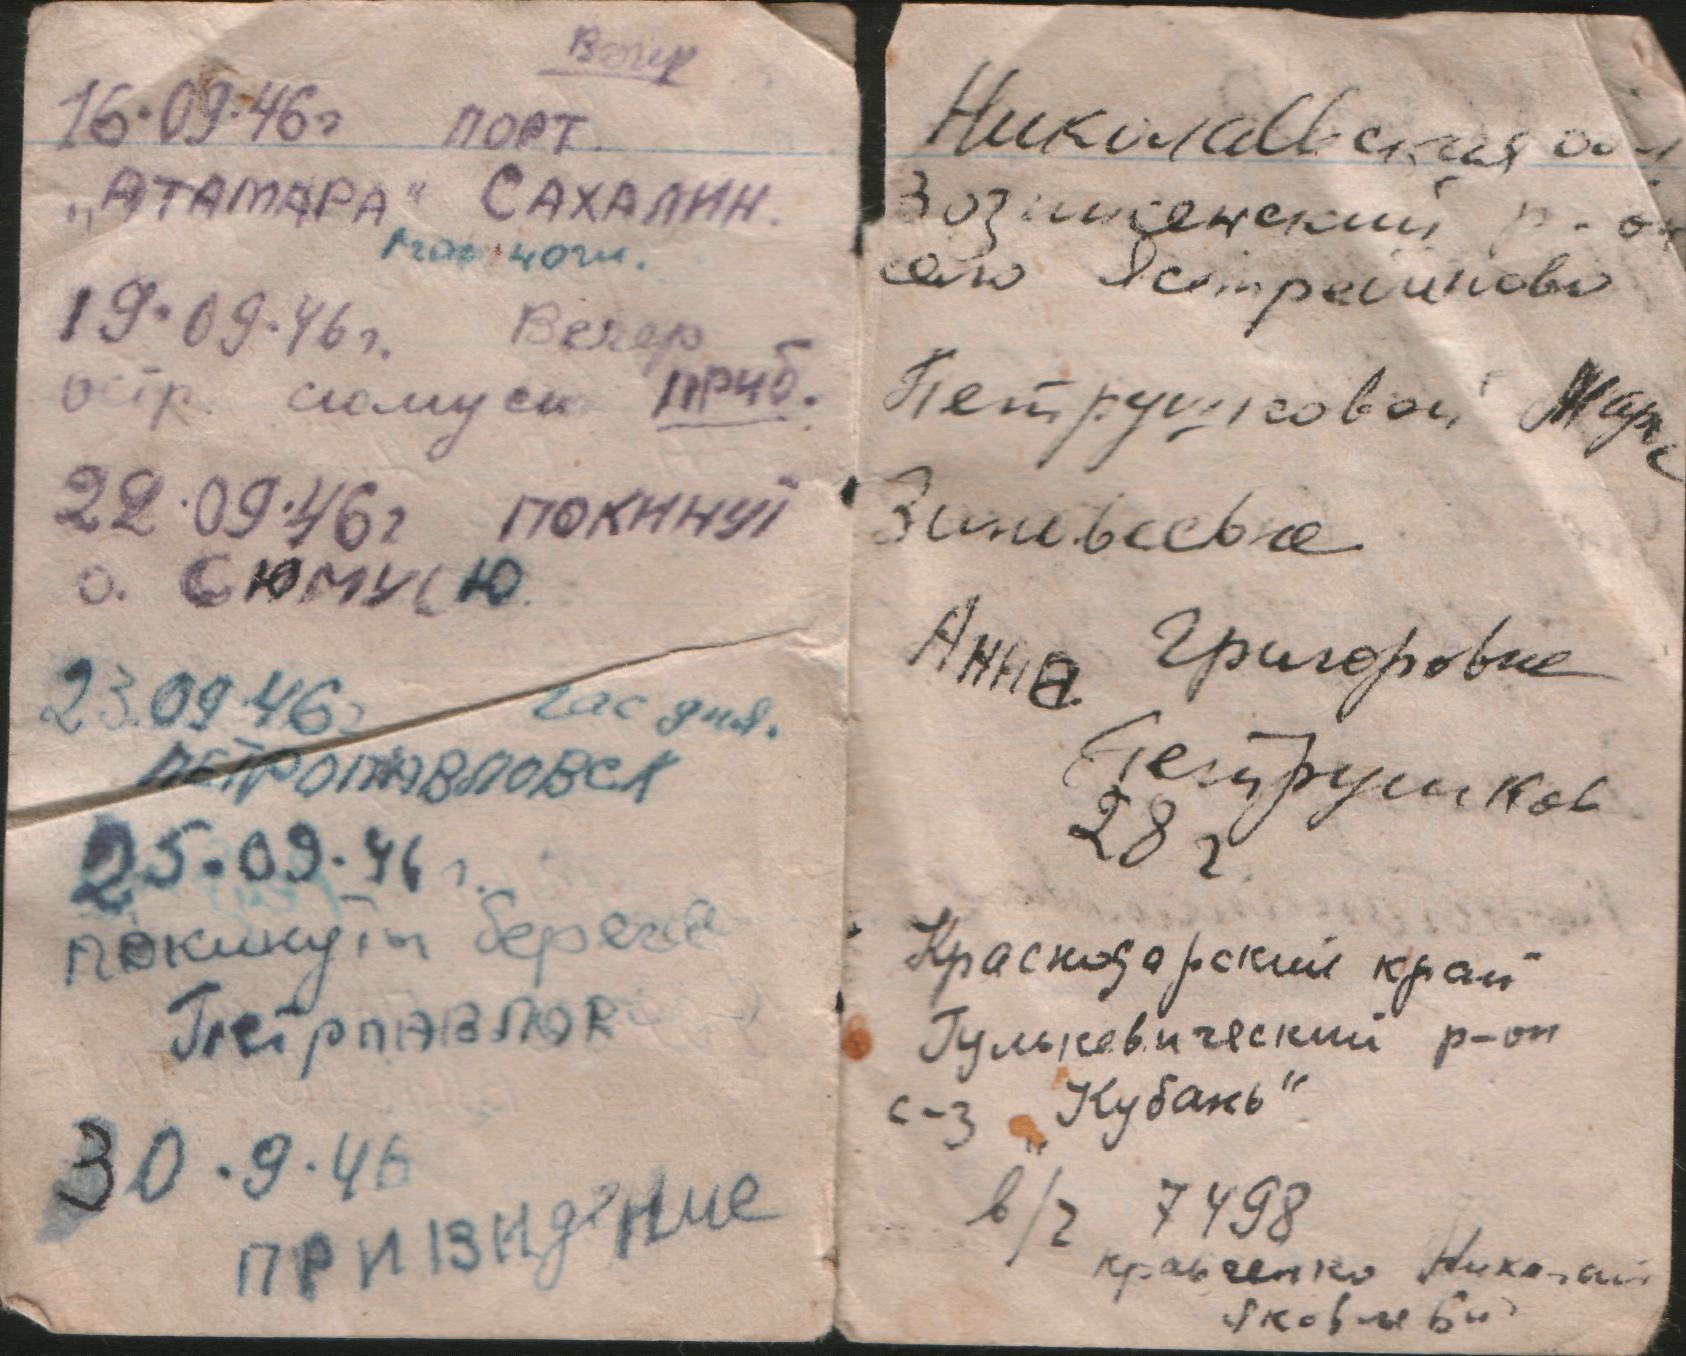 Вечер
16.09.46г порт.
„Атамара" Сахалин.
ночи.
19.09.46г. Вечер
остр. сюмусю приб.
22.09.46г покинут
о. Сюмусю.
23.09.46г час дня.
Петропавловск
25.09.46г.
покинуты берега
Петрпавлов
30.9.46
Привидение
Николаевская обл
Вознисенский р-он
село Ястребиново
Петрушковой Марс
Зиновьевне
Анна Григоровне
Петрушков
28 г
Краснодарский край
Гулькевический р-он
с-з „Кубань"
в/ч 7498
кравченко Николай
Яковлеви